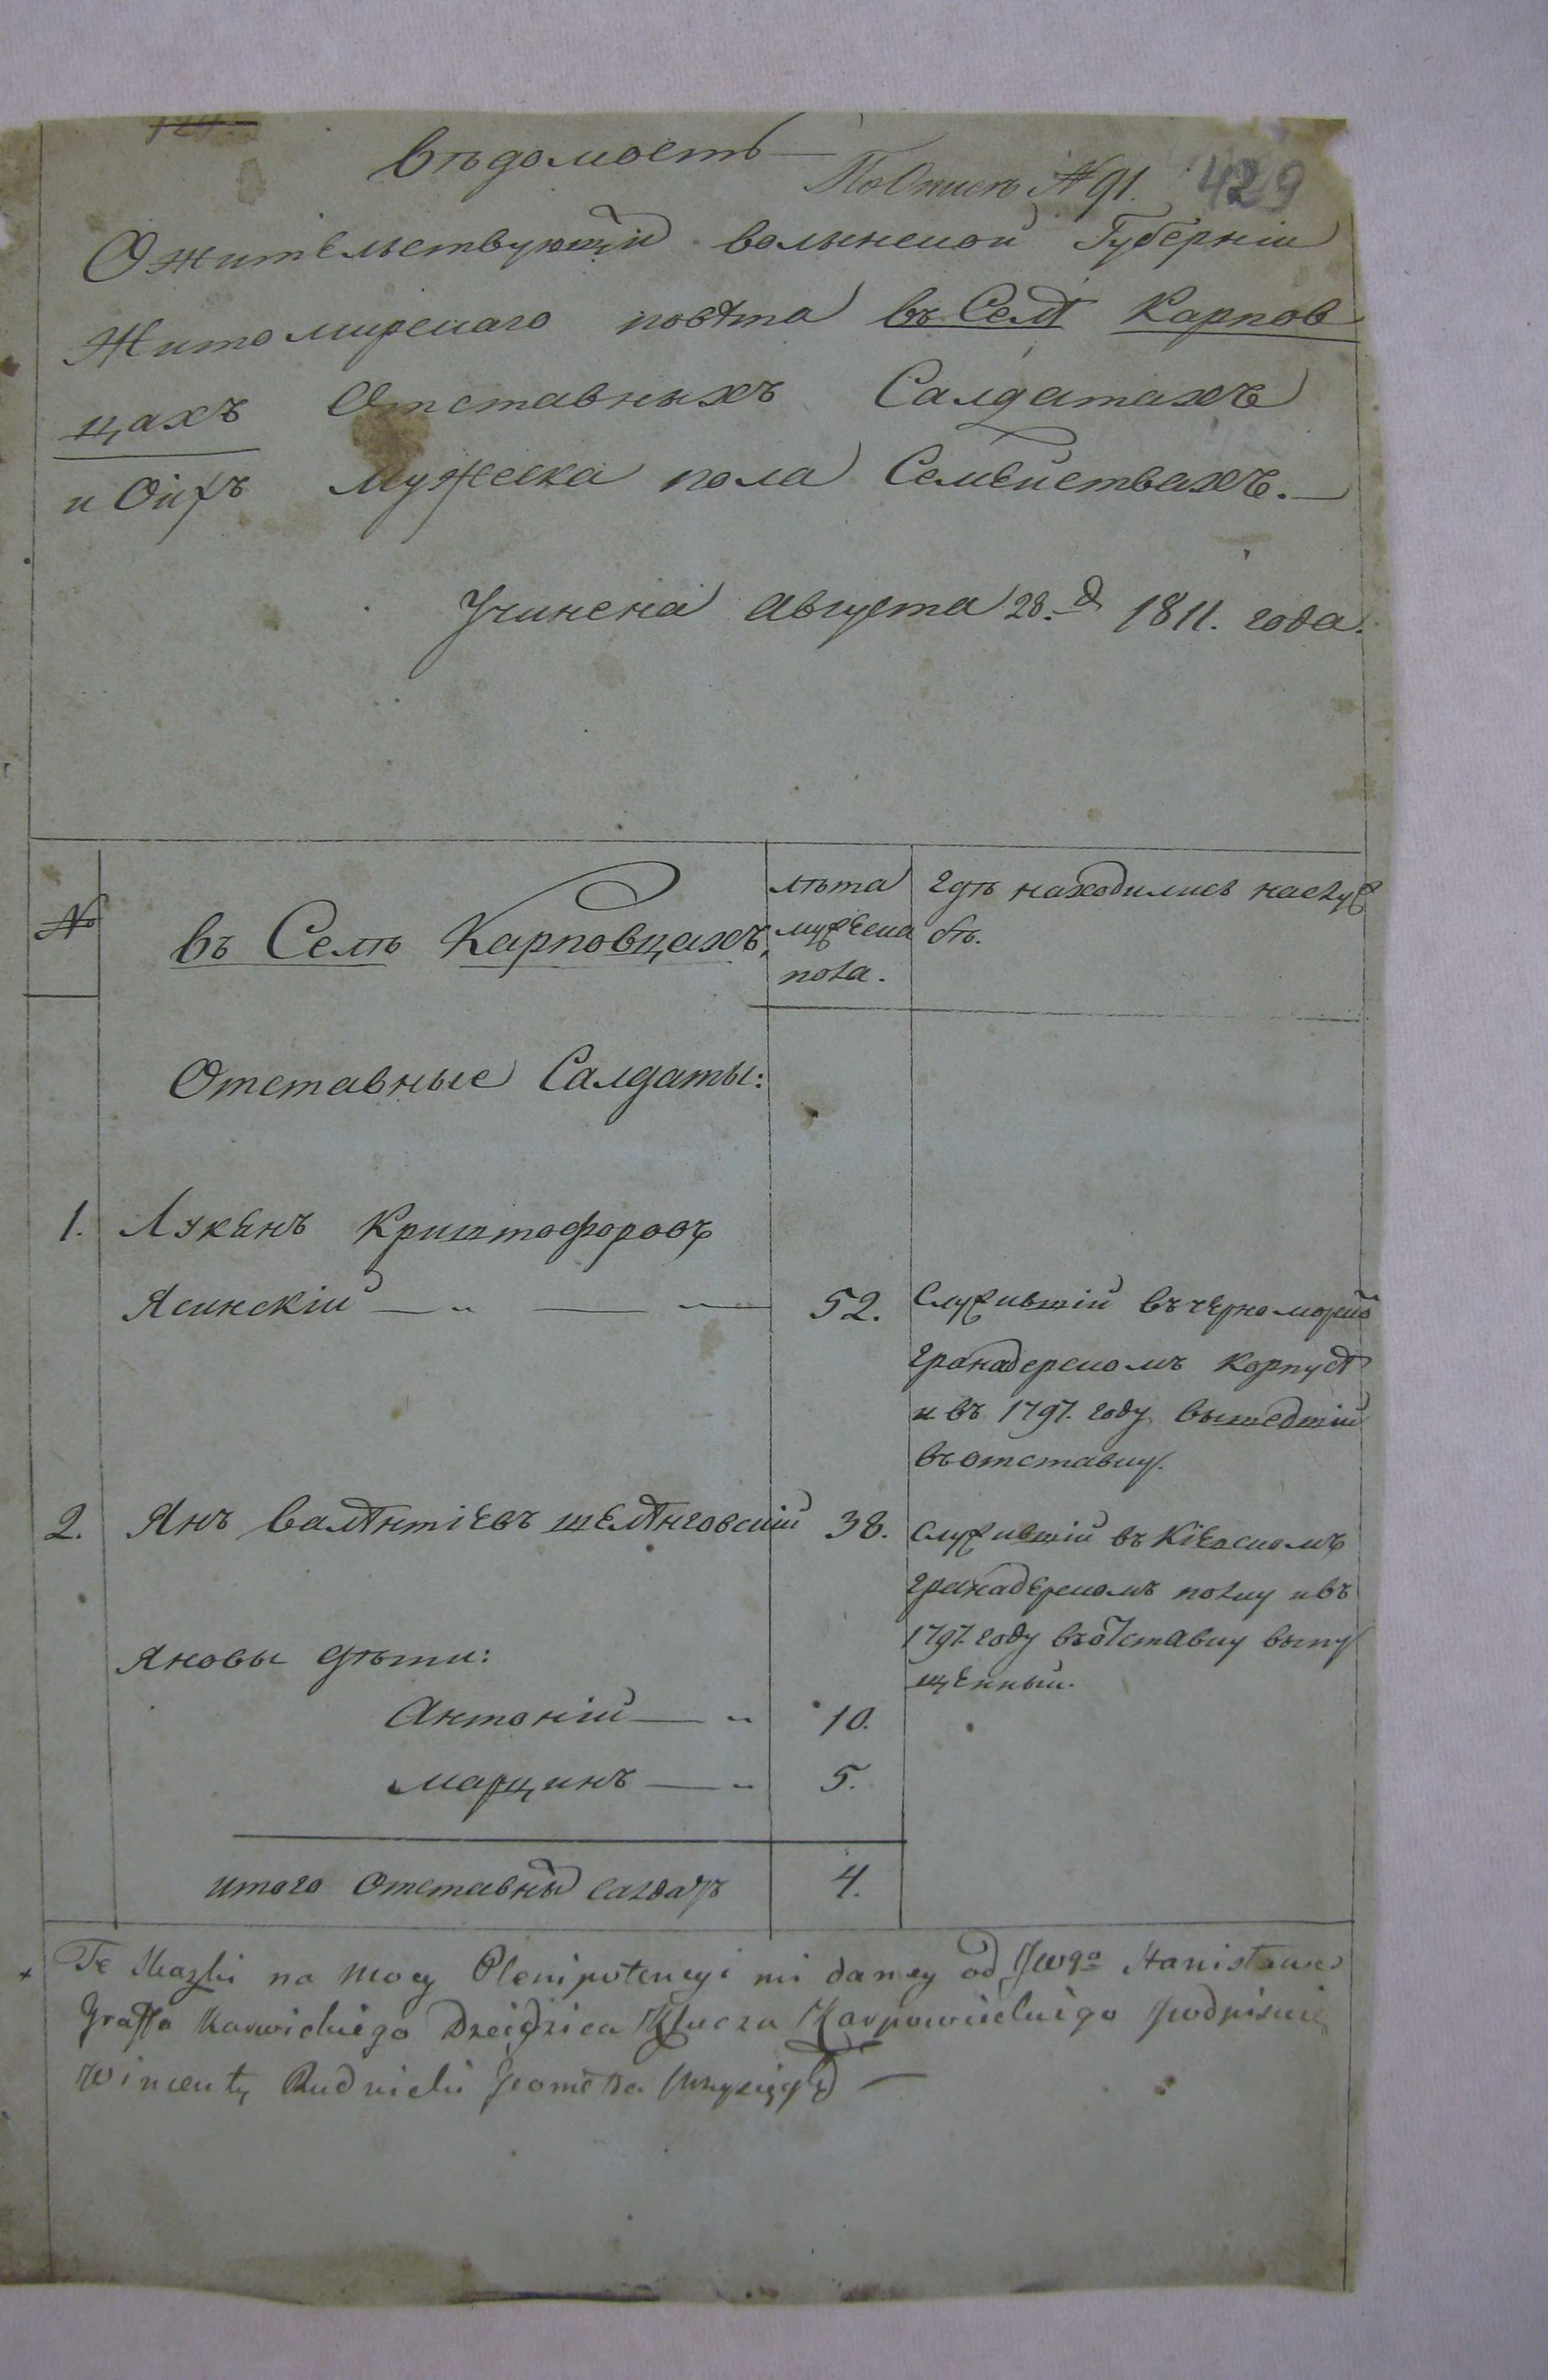 Вѣдомость
По Описи № 91. 429
О жительствующихъ Волынской Губерніи
Житомирскаго повѣта въ Селѣ Карпов
цахъ Отставныхъ Салдатахъ
и о ихъ мужеска пола Семействахъ.
Учинена Августа 28. д 1811. года.
№
въ Селѣ Карповцахъ,
лѣта
мужеска
пола.
гдѣ находились на служ
бѣ.
Отставные Салдаты:
1. Лукянъ Криштофоровъ
Ясинскій 52.
служившій въ черноморско
гранадерскомъ корпусѣ
и въ 1797. году вышедшій
въ отставку.
2. Янъ Валентіевъ 38.
служившій въ Кіевскомъ
гранадерскомъ полку и въ
1797. году въ отставку выпу
щенный.
Яновы дѣти:
Антоній 10.
Марцинъ 5.
итого отставныхъ салдатъ 4.
Te Skazki na Mocy Plenipotencyi mi daney od JWgo Stanisława
Graffa Karwickiego Dziedzica Klucza Karpowieckiego podpisuię
Wincenty Rudnicki Jeometra Przysięgły